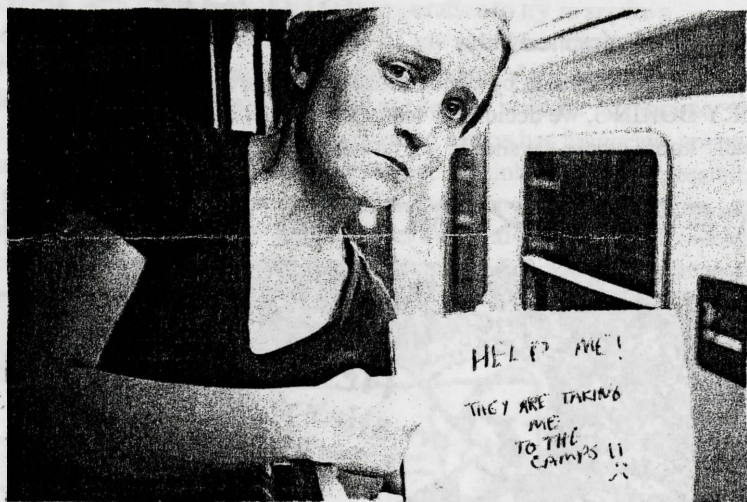 HELP ME!
THEY ARE TAKING
ME
TO THE
CAMPS !!
:(